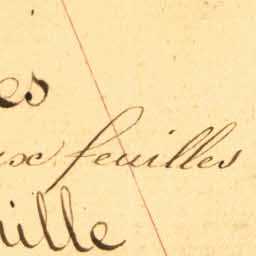 es
ux feuilles
uille